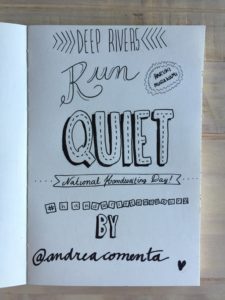 DEEP RIVERS
Run
QUIET
National Handwriting Day!
BY
@andreacomenta